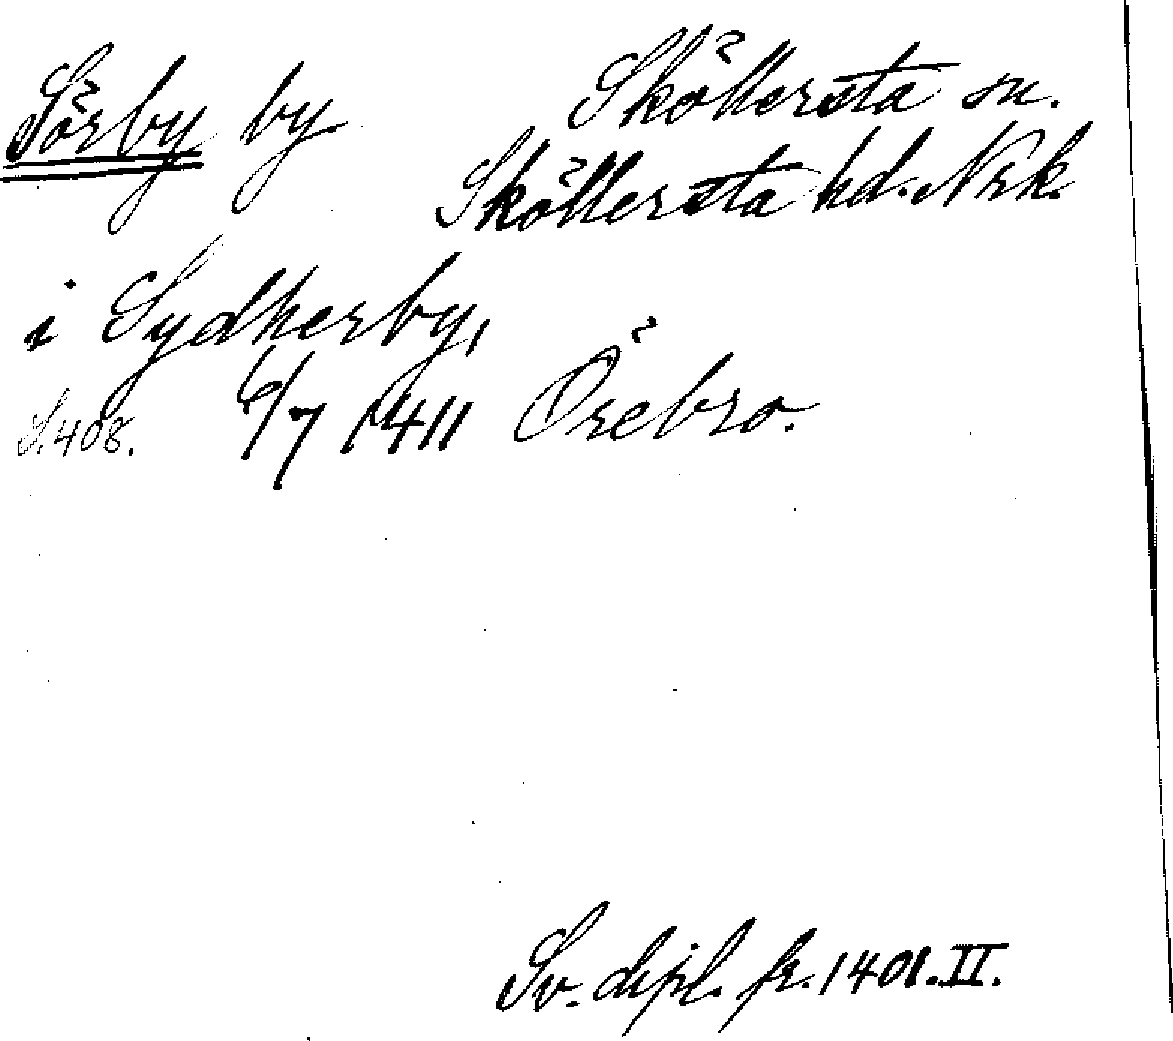 Sörby by. Sköllersta sn.
Sköllersta hd. Nrk.
i Sydherby,
S. 408. 6/7 1411 Örebro.
Sv. dipl. fr. 1401. II.